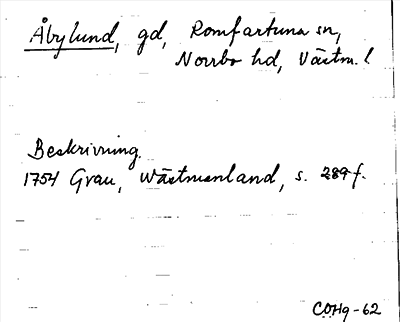 Åbylund, gd, Romfartuna sn,
Norrbo hd, Västm. l
Beskrivning.
1754 Grau, Wästmanland, s. 289 f.
COHg-62